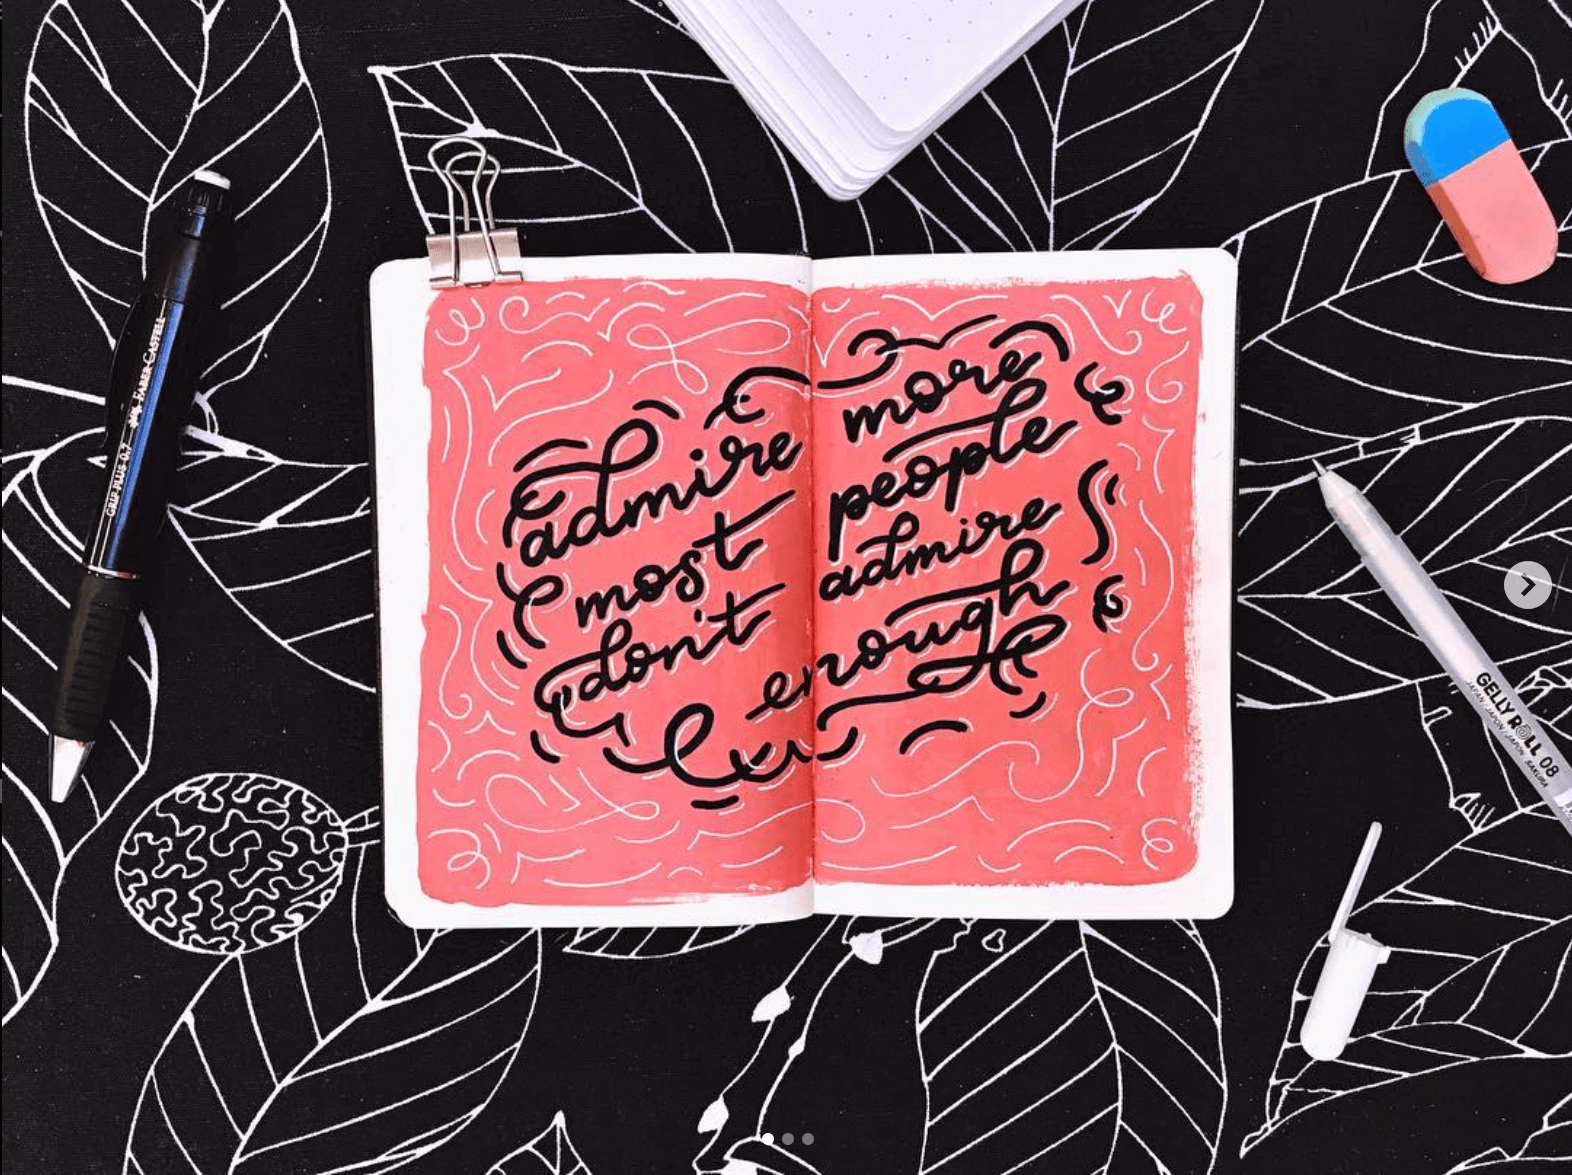 admire more
most people
don't admire
enough
FABER-CASTELL
GRIP PLUS 0.7
GELLY ROLL 08
JAPAN / JAPON / JAPÓN SAKURA